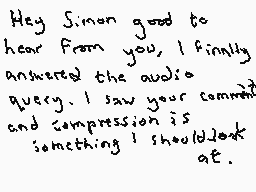 Hey Simon good to
hear from you, I finally
answered the audio
query. I saw your comment
and compression is
something I should look
at.